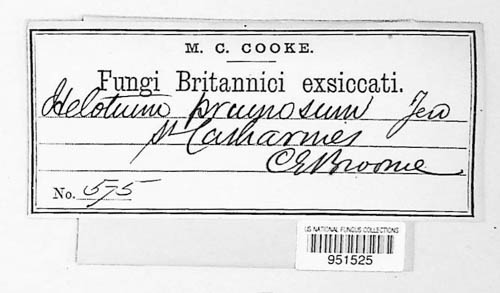 M. C. COOKE.
Fungi Britannici exsiccati.
Helotium pruinosum Jer
St Catharines
CEBroome.
No. 575
US NATIONAL FUNGUS COLLECTIONS
951525